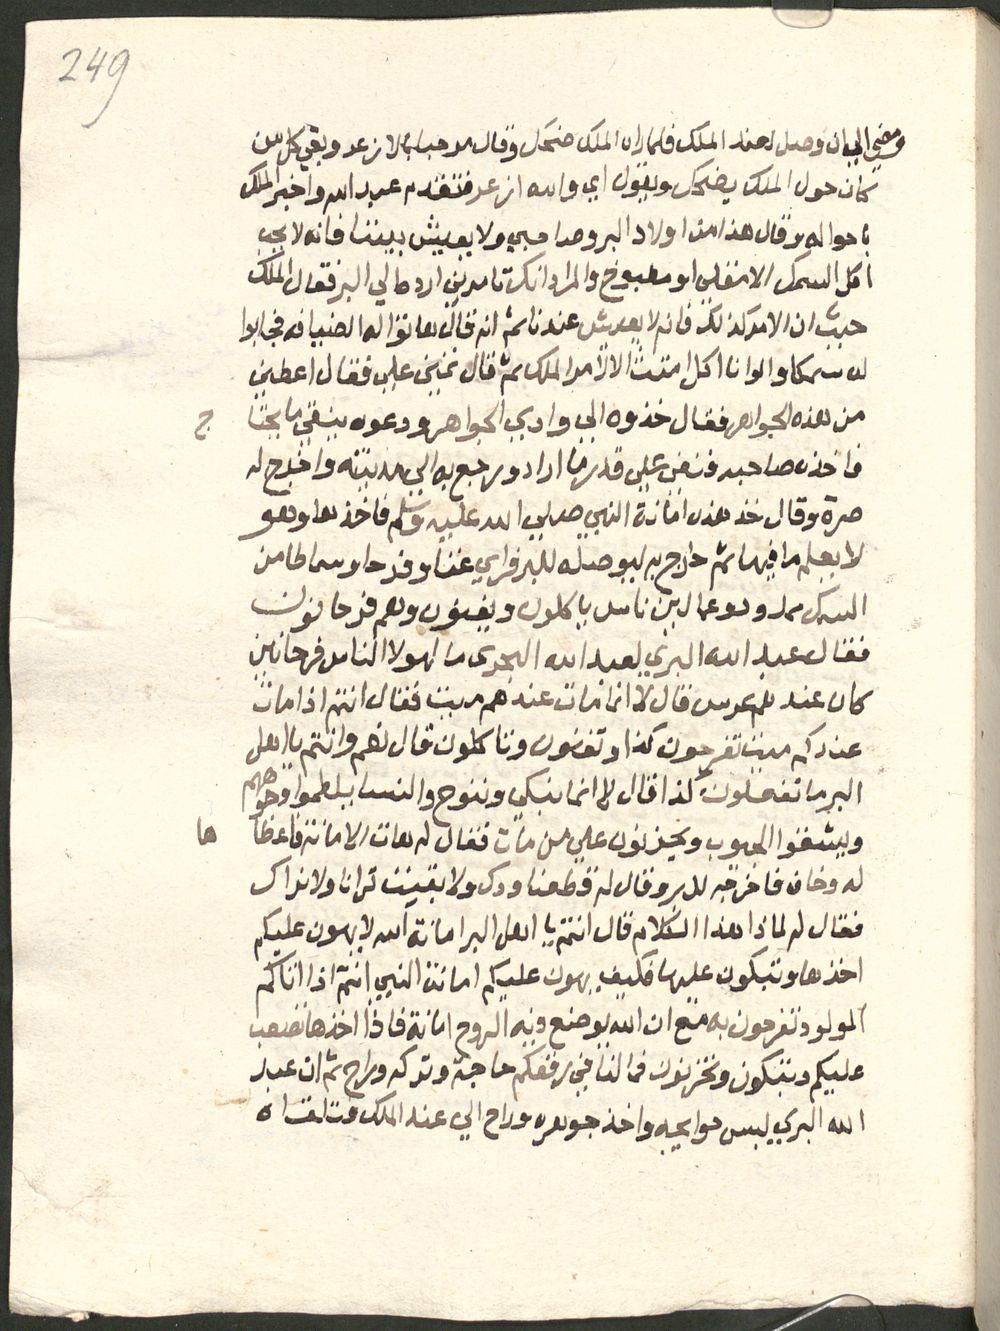 249
ومضي الي ان وصل لعند الملك فلما راه الملك ضحك وقال مرحبا بالازعر وبقي كل من
كان حول الملك يضحك ويقول اي والله ازعر فتقدم عبد الله واخبر الملك
باحواله وقال هذا من اولاد البر وصاحبي ولا يعيش بيننا فانه لا يحب
اكل السمك الا مقلي او مطبوخ والمراد انك تامرني ارده الي البر فقال الملك
حيث ان الامر كذلك فانه لا يعيش عندنا ثم انه قال هاتوا له الضيافه فجابوا
له سمكا والوانا اكل امتثالا لامر الملك ثم قال تمني علي فقال اعطيني
من هذه الجواهر فقال خذوه الي وادي الجواهر ودعوه ينتقي ما يحتاج
فاخذه صاحبه فنقي علي قدر ما اراد ورجع به الي مدينته واخرج له
صرة وقال خذ هذه امانة النبي صلي الله عليه وسلم فاخذها وهو
لا يعلم ما فيها ثم خارج به ليوصله للبر فراي غنا وفرحا وسماطا من
السمك ممدود وعمالين ناس ياكلون ويغنون وهم فرحانون
فقال عبد الله البري لعبد الله البحري ما لهولا الناس فرحانين
كان عندهم عرس قال لا انما مات عندهم ميت فقال انتم اذا مات
عندكم ميت تفرحون كذا وتغنون وتاكلون قال نعم وانتم يا اهل
البر ما تفعلون كذا قال لا انما نبكي وننوح والنسا يلطموا وجوههم
ويشققوا الجيوب ويحزنون علي من مات فقال له هات الامانة فاعطاها
له وخاف فاخرجه للبر وقال له قطعنا ودك ولا بقيت ترانا ولا نراك
فقال له لماذا هذا الكلام قال انتم يا اهل البر امانة الله لا يهون عليكم
اخذها وتبكون عليها فكيف يهون عليكم امانة النبي انتم اذا اتاكم
المولود تفرحون به مع ان الله يوضع فيه الروح امانة فاذا اخذها تصعب
عليكم وتبكون وتحزنون فما لنا في رفقكم حاجة وتركه وراح ثم ان عبد
الله البري لبس حوايجه واخذ جوهره وراح الي عند الملك فتلقاه